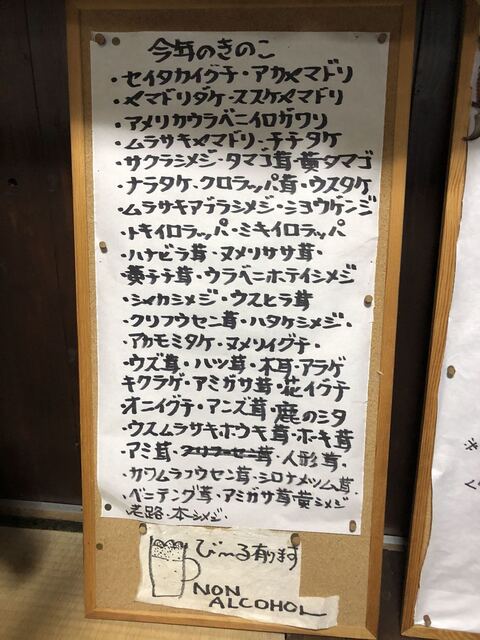 今年のきのこ
・セイタカイグチ・アカメマドリ
・メマドリダケ・ススケメマドリ
・アメリカウラベニイログワリ
・ムラサキメマドリ・チチタケ
・サクラシメジ・タマゴ茸・黄タマゴ
・ナラタケ・クロラッパ茸・ウスタケ
・ムラサキアブラシメジ・ショウゲンジ
・トキイロラッパ・ミキイロラッパ
・ハナビラ茸・ヌメリササ茸・
・黄チチ茸・ウラベニホテイシメジ
・シャカシメジ・ウスヒラ茸
・クリフウセン茸・ハタケシメジ・
・アカモミタケ・ヌメリイグチ・
・ウズ茸・ハツ茸・木耳・アラゲ
キクラゲ・アミガサ茸・花イグチ
オニイグチ・アンズ茸・鹿のシタ
・ウスムラサキホウキ茸・ホーキ茸
・アミ茸・クリフーセン茸・人形茸・
・カワムラフウセン茸・シロナメツム茸・
・ベニテング茸・アミガサ茸・黄シメジ
・老路・本シメジ・
び〜る有ります
NON
ALCOHOL